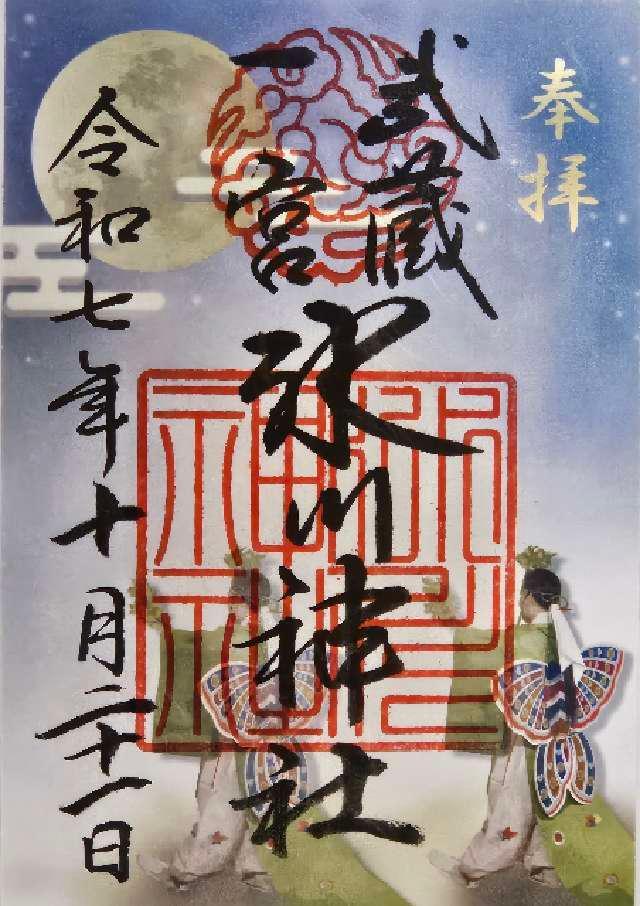 奉拝
武蔵
一宮
氷川神社
氷川神社
令和七年十月二十一日